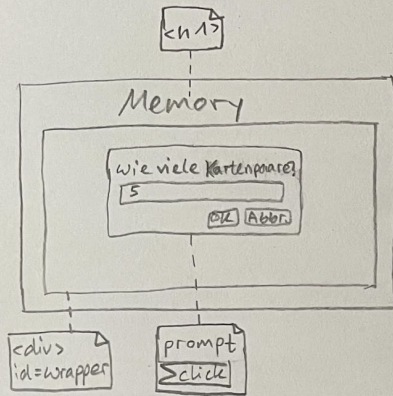 <h1>
Memory
Wie viele Kartenpaare?
5
OK Abbr.
<div>
id=wrapper
prompt
>click